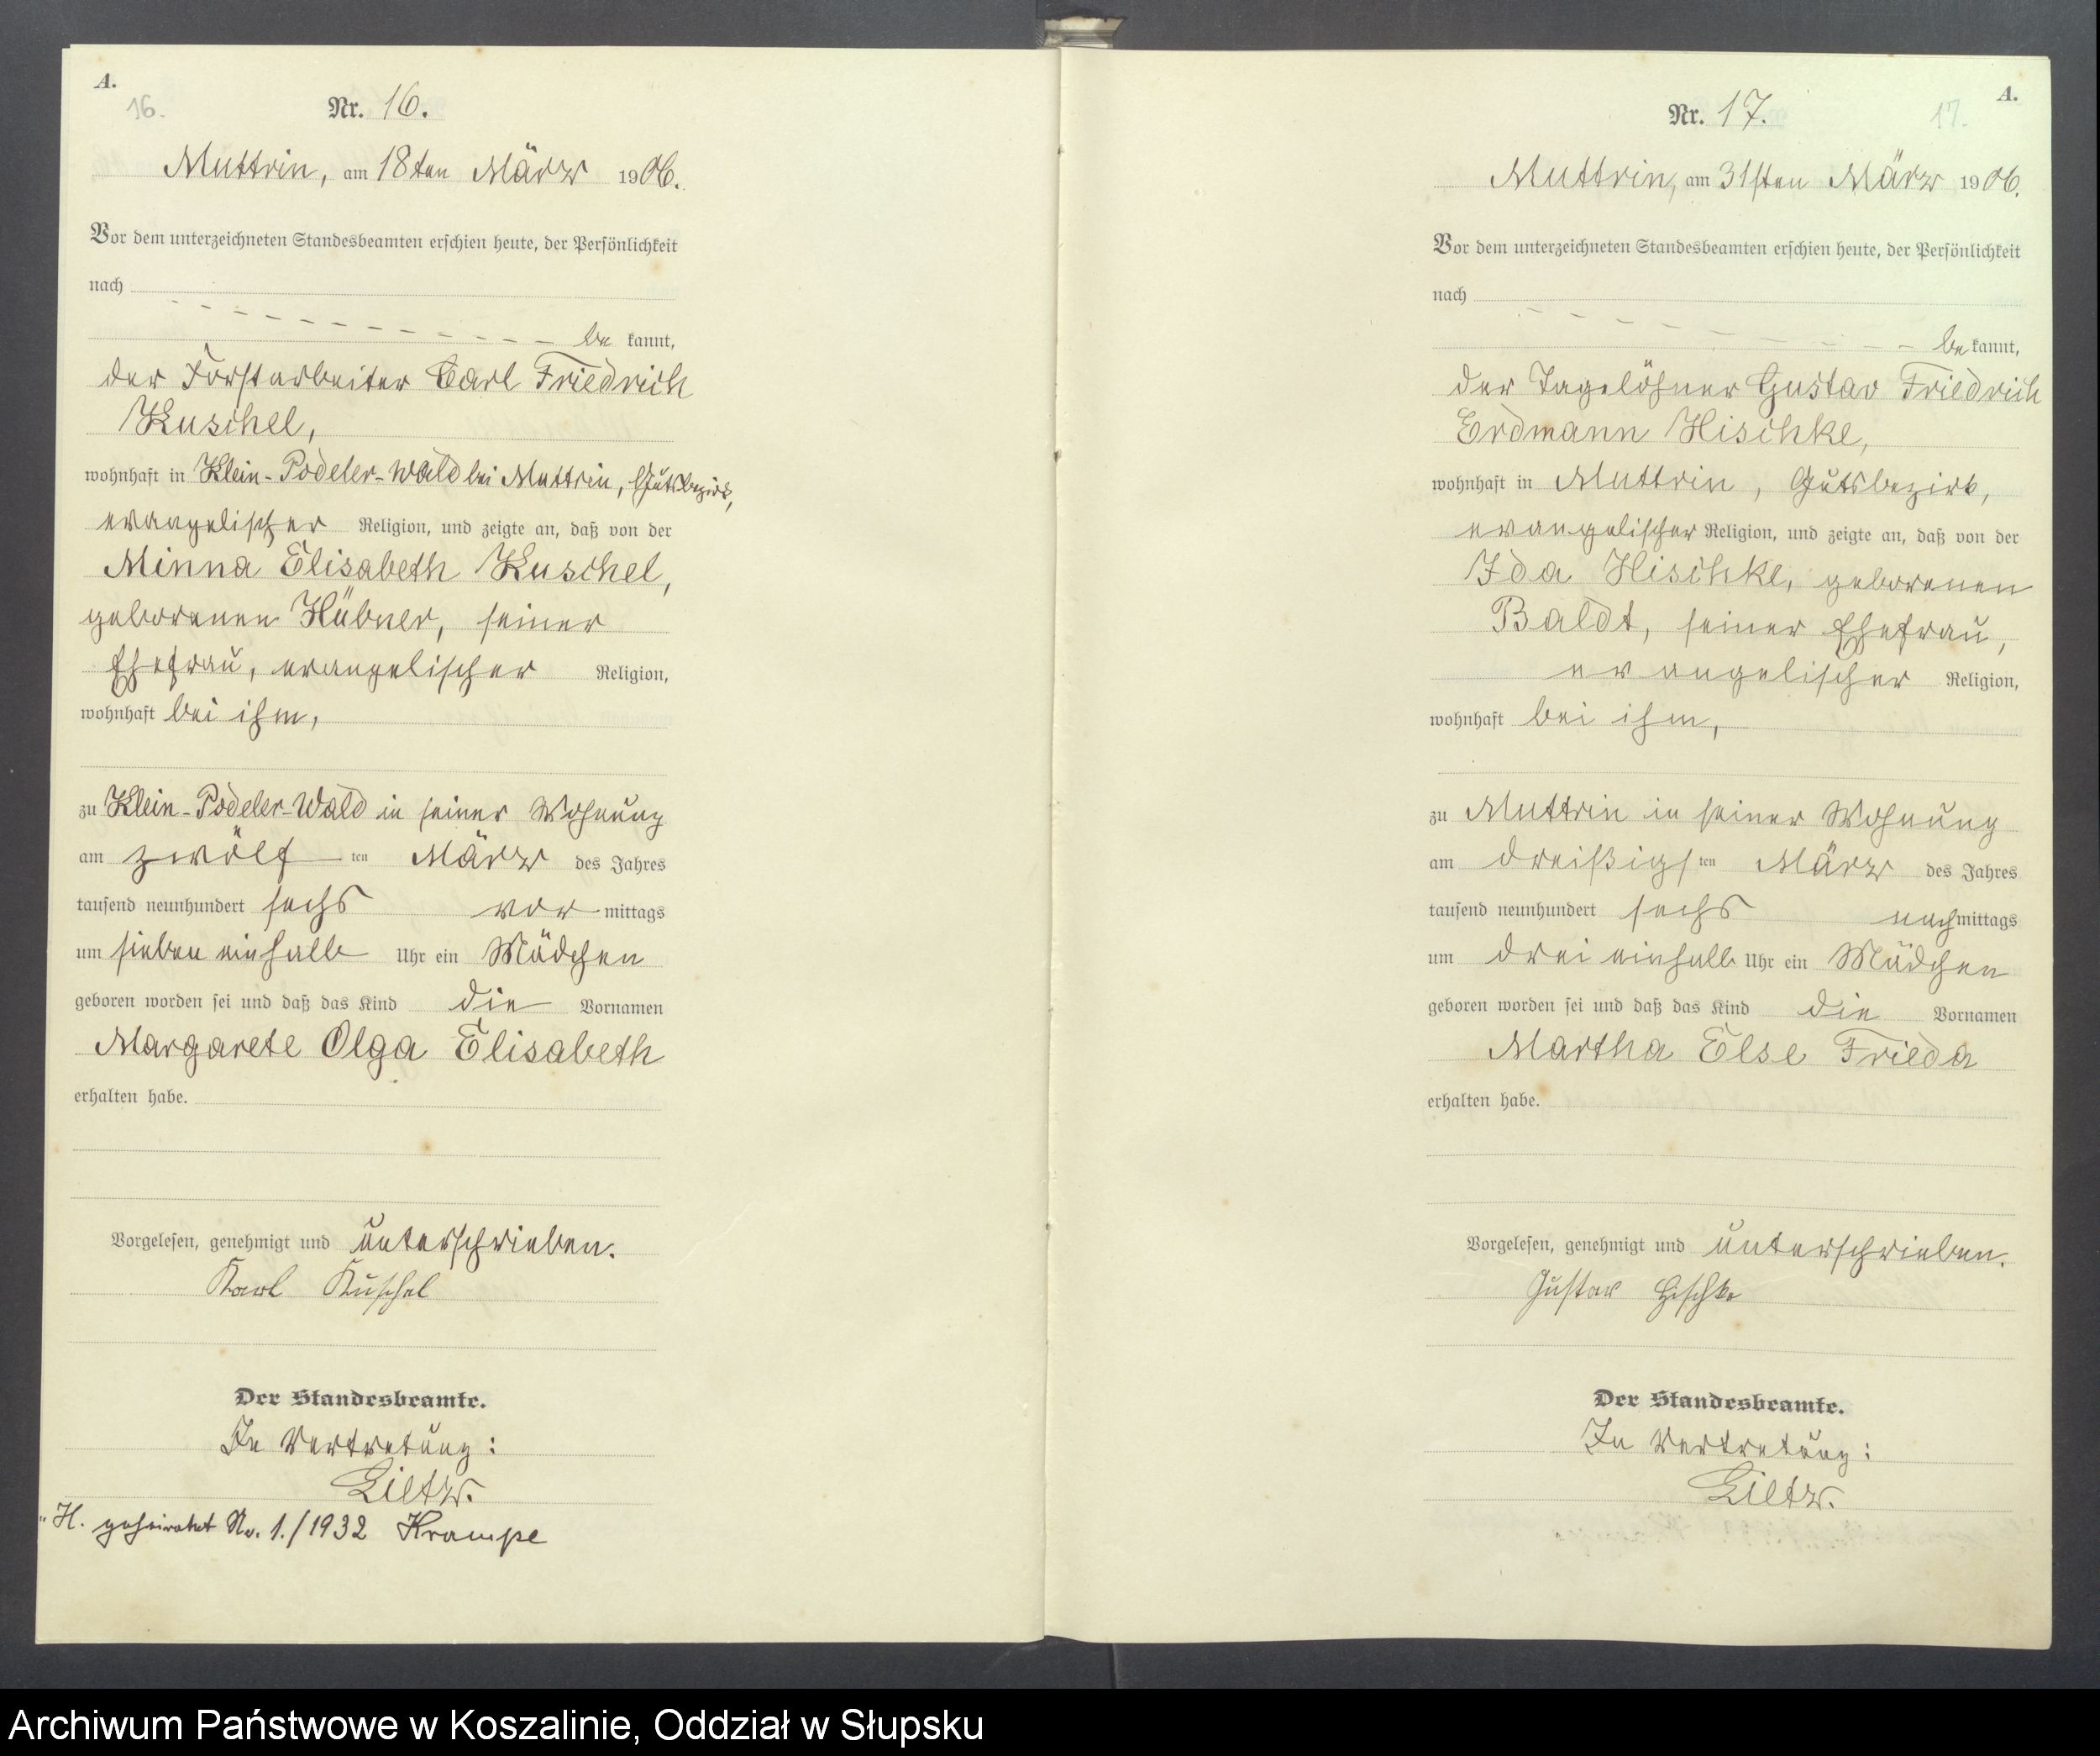 A.
16.
Nr. 16.
Muttrin, am 18ten März 1906.
Vor dem unterzeichneten Standesbeamten erschien heute, der Persönlichkeit
nach
be kannt,
der Forstarbeiter Carl Friedrich
Kuschel,
wohnhaft in Klein-Podeler-Wald bei Muttrin, Gutsbezirk,
evangelischer Religion, und zeigte an, daß von der
Minna Elisabeth Kuschel,
geborenen Hübner, seiner
Ehefrau, evangelischer Religion,
wohnhaft bei ihm,
zu Klein-Podeler-Wald in seiner Wohnung
am zwölf ten März des Jahres
tausend neunhundert sechs vor mittags
um sieben einhalb Uhr ein Mädchen
geboren worden sei und daß das Kind die Vornamen
Margarete Olga Elisabeth
erhalten habe.
Vorgelesen, genehmigt und unterschrieben.
Karl Kuschel
Der Standesbeamte.
In Vertretung:
Lietz.
H. geheiratet No. 1./1932 Krampe
A.
17.
Nr. 17.
Muttrin, am 31sten März 1906.
Vor dem unterzeichneten Standesbeamten erschien heute, der Persönlichkeit
nach
be kannt,
der Tagelöhner Gustav Friedrich
Erdmann Hischke,
wohnhaft in Muttrin, Gutsbezirk,
evangelischer Religion, und zeigte an, daß von der
Ida Hischke, geborenen
Baldt, seiner Ehefrau,
evangelischer Religion,
wohnhaft bei ihm,
zu Muttrin in seiner Wohnung
am dreißigs ten März des Jahres
tausend neunhundert sechs nach mittags
um drei einhalb Uhr ein Mädchen
geboren worden sei und daß das Kind die Vornamen
Martha Else Frieda
erhalten habe.
Vorgelesen, genehmigt und unterschrieben.
Gustav Hischke
Der Standesbeamte.
In Vertretung:
Lietz.
Archiwum Państwowe w Koszalinie, Oddział w Słupsku